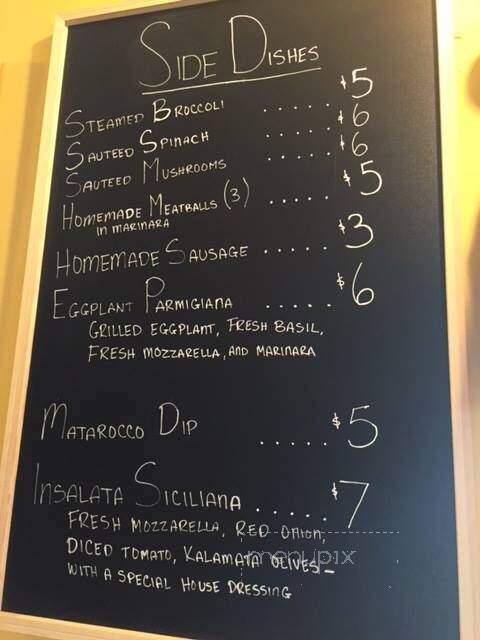 SIDE DISHES
STEAMED BROCCOLI ..... $5
SAUTEED SPINACH ..... $6
SAUTEED MUSHROOMS ..... $6
HOMEMADE MEATBALLS (3) ..... $5
IN MARINARA
HOMEMADE SAUSAGE ..... $3
EGGPLANT PARMIGIANA ..... $6
GRILLED EGGPLANT, FRESH BASIL,
FRESH MOZZARELLA, AND MARINARA
MATAROCCO DIP ..... $5
INSALATA SICILIANA ..... $7
FRESH MOZZARELLA, RED ONION,
DICED TOMATO, KALAMATA OLIVES -
WITH A SPECIAL HOUSE DRESSING
menupix